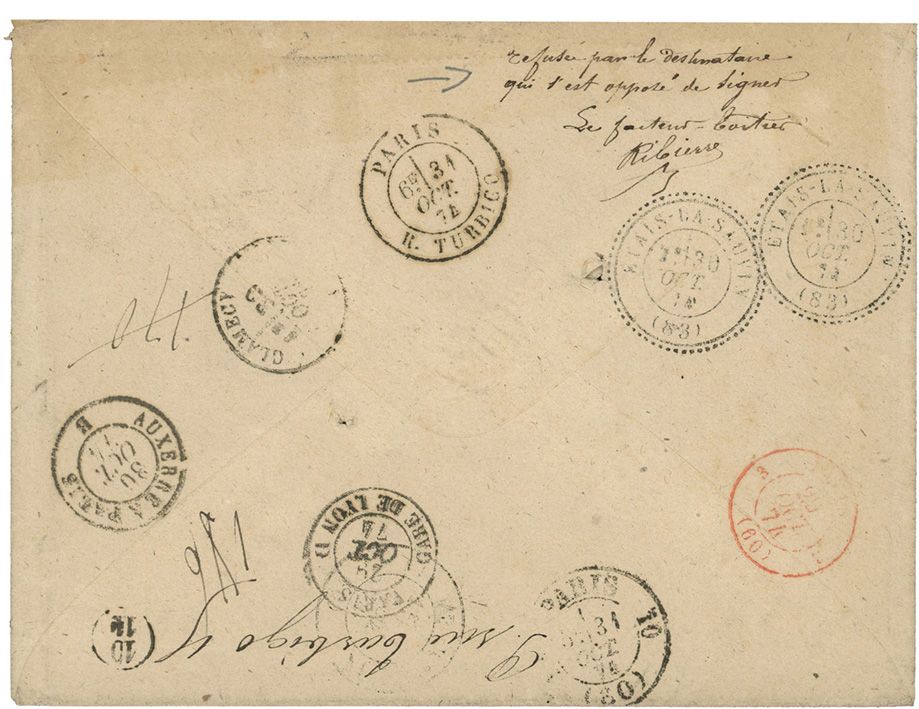 refusée par le destinataire
qui s'est opposé de signer
Le facteur-boitier
Ribierre
PARIS
6E 31
OCT.
74
R. TURBIGO
ETAIS-LA-SAUVIN
30
OCT.
74
(83)
ETAIS-LA-SAUVIN
30
OCT.
74
(83)
CLAMECY
AUXERRE A PARIS
B
30
OCT.
GARE DE LYON
74
OCT
PARIS
(60)
rue turbigo
PARIS
10
31
OCT
74
(60)
10
14